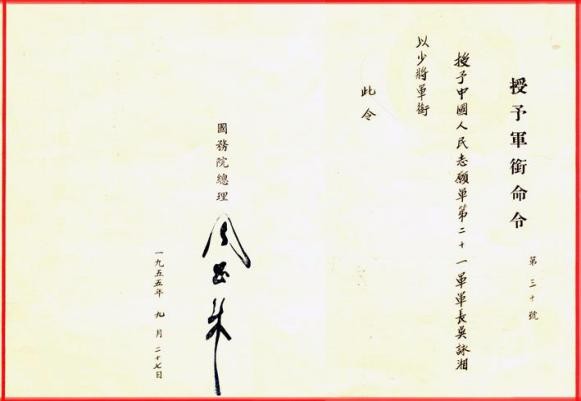 授予軍銜命令
第三十號
授予中國人民志願軍第二十一軍軍長吳詠湘
以少將軍銜
此令
國務院總理
周恩来
一九五五年九月二十七日